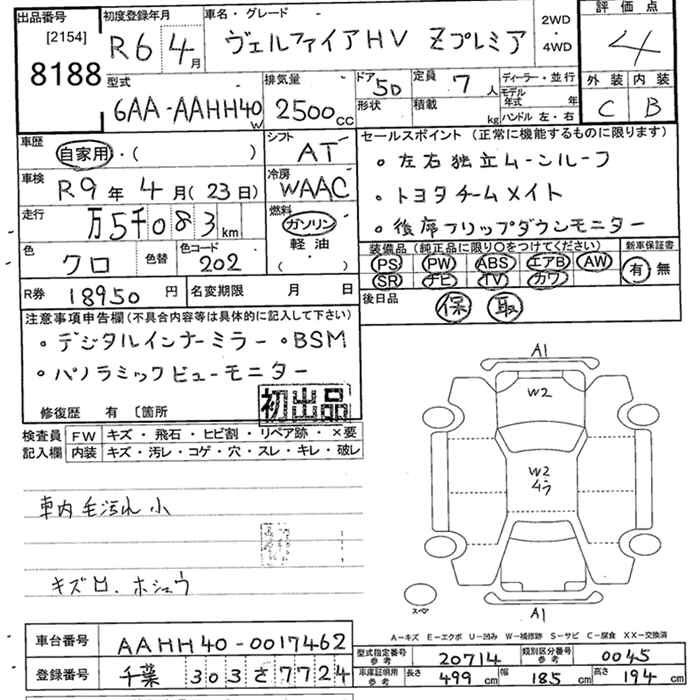 出品番号 [2154] 8188
初度登録年月 R6 4月
車名・グレード ヴェルファイアHV Zプレミア 2WD・4WD
評価点 4
型式 6AA-AAHH40W
排気量 2500cc
ドア 5D 形状
定員 7人 積載 kg
ディーラー・並行
モデル年式 年
ハンドル 左・右
外装 C 内装 B
車歴 自家用・( )
シフト AT
車検 R9年4月(23日)
冷房 WAAC
走行 万5千083km
燃料 ガソリン 軽油・( )
色 クロ 色替 色コード 202
R券 18950円 名変期限 月 日
セールスポイント(正常に機能するものに限ります)
・左右独立ムーンルーフ
・トヨタチームメイト
・後席フリップダウンモニター
装備品(純正品に限り○をつけてください) 新車保証書
PS PW ABS エアB AW 有・無
SR ナビ TV カワ
後日品 保 取
注意事項申告欄(不具合内容等は具体的に記入して下さい)
・デジタルインナーミラー・BSM
・パノラミックビューモニター
修復歴 有 〔箇所
初出品
検査員記入欄 FW キズ・飛石・ヒビ割・リペア跡・×要
内装 キズ・汚レ・コゲ・穴・スレ・キレ・破レ
車内毛汚れ小
キズ ホシュウ
A1
W2
W2
A1
スペア
A-キズ E-エクボ U-凹み W-補修跡 S-サビ C-腐食 XX-交換済
車台番号 AAHH40-0017462
登録番号 千葉 303さ7724
型式指定番号 参考 20714 類別区分番号 参考 0045
車庫証明用 参考 長さ 499cm 幅 185cm 高さ 194cm